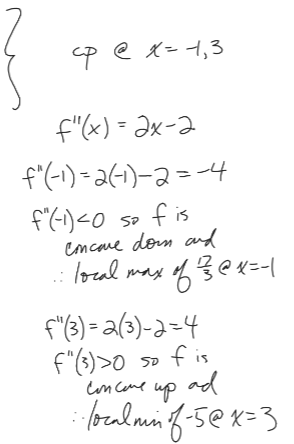 cp @ x = -1,3
f"(x) = 2x-2
f"(-1) = 2(-1)-2 = -4
f"(-1)<0 so f is
concave down and
∴ local max of 17/3 @ x=-1
f"(3) = 2(3)-2=4
f"(3)>0 so f is
concave up ad
∴ local min of -5 @ x=3